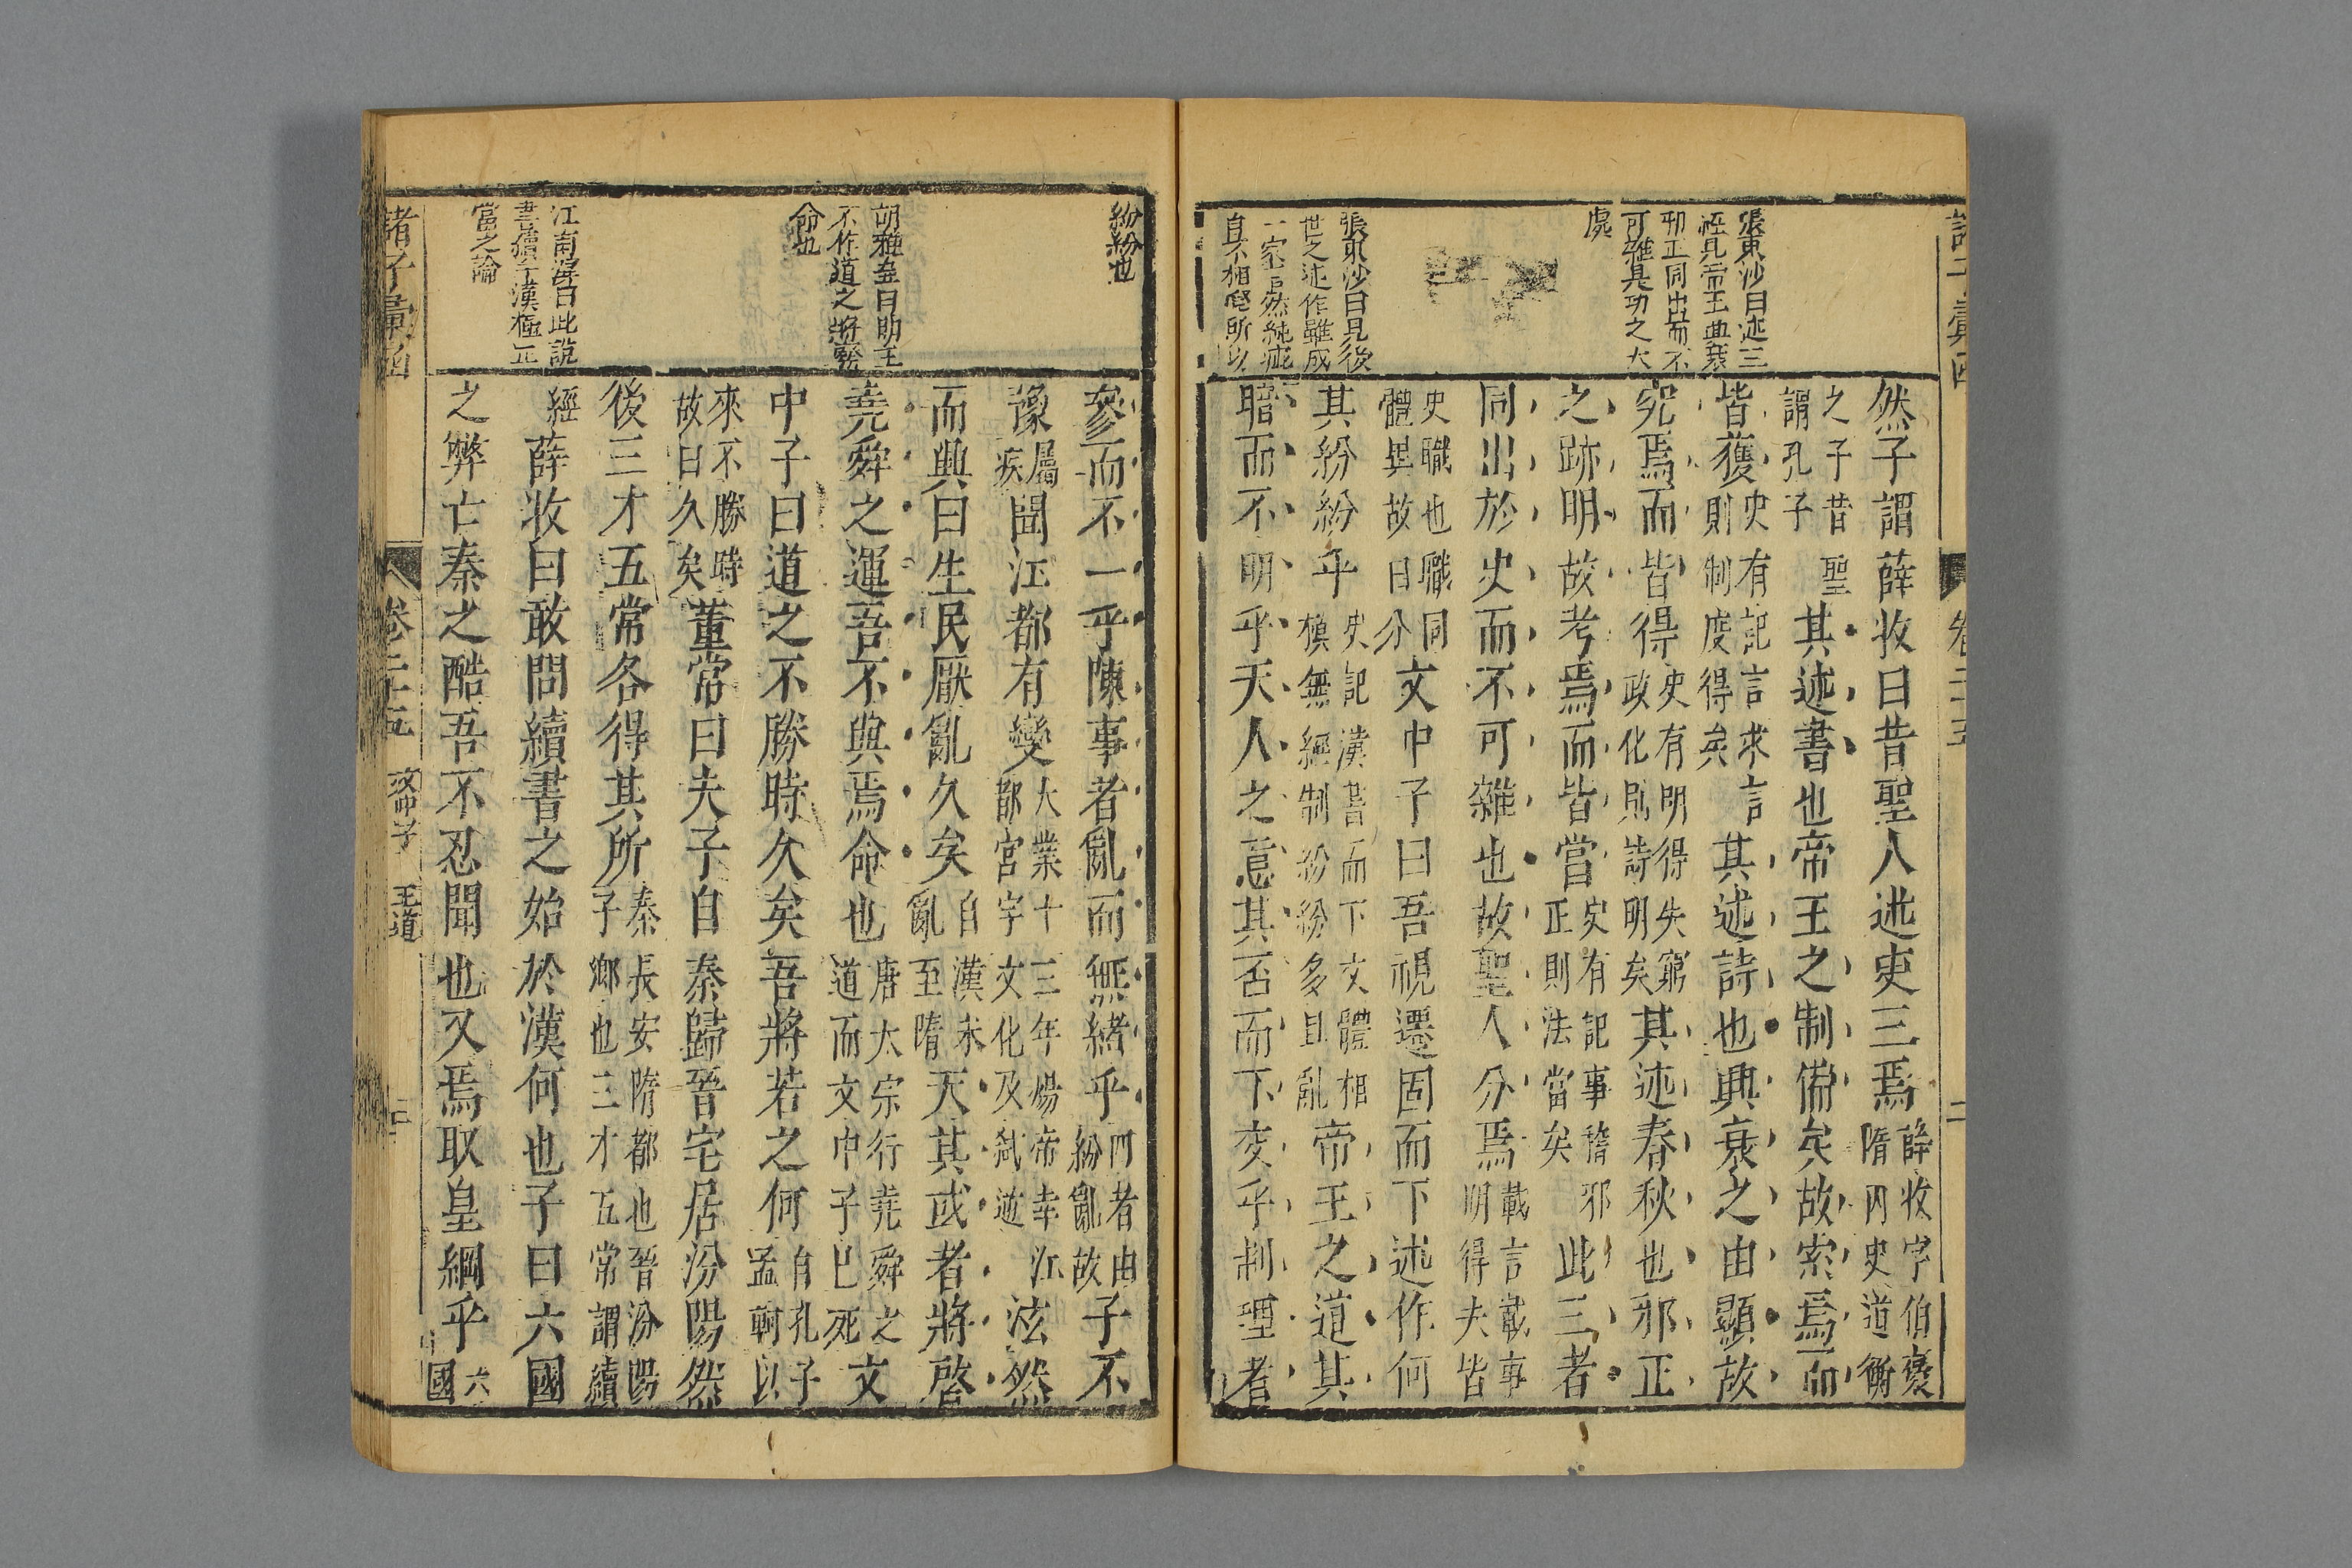 張東沙曰述三
經見帝王典衰
邪正同出而不
可雜是功之大
處
張東沙曰見後
世之述作雖成
一家言然純疵
自不相掩所以
然子謂薛收曰昔聖人述史三焉薛收字伯褒
隋內史道衡
之子昔聖
謂孔子其述書也帝王之制備矣故索焉而
皆獲史有記言求言
則制度得矣其述詩也興衰之由顯故
究焉而皆得史有明得失窮
政化則詩明矣其述春秋也邪正
之跡明故考焉而皆當史有記事稽邪
正則法當矣此三者
同出於史而不可雜也故聖人分焉載言載事
明得夫皆
史職也職同
體異故曰分文中子曰吾視遷固而下述作何
其紛紛乎史記漢書而下文體相
模無經制紛紛多且亂帝王之道其
暗而不明乎天人之意其否而不交乎制理者
紛紛也
胡雅益曰明王
不作道之將廢
命也
江南溟曰此說
書續于漢極正
當之論
參而不一乎陳事者亂而無緒乎四者由
紛亂故子不
豫屬
疾聞江都有變大業十三年煬帝幸江
都宮宇文化及弒逆泫然
而興曰生民厭亂久矣自漢末
亂至隋天其或者將啓
堯舜之運吾不與焉命也唐太宗行堯舜之
道而文中子已死文
中子曰道之不勝時久矣吾將若之何自孔子
孟軻以
來不勝時
故曰久矣董常曰夫子自秦歸晉宅居汾陽然
後三才五常各得其所秦長安隋都也晉汾陽
子鄉也三才五常謂續
經薛收曰敢問續書之始於漢何也子曰六國
之弊亡秦之酷吾不忍聞也又焉取皇綱乎六
國
諸子彙函
卷二十五
文中子
王道